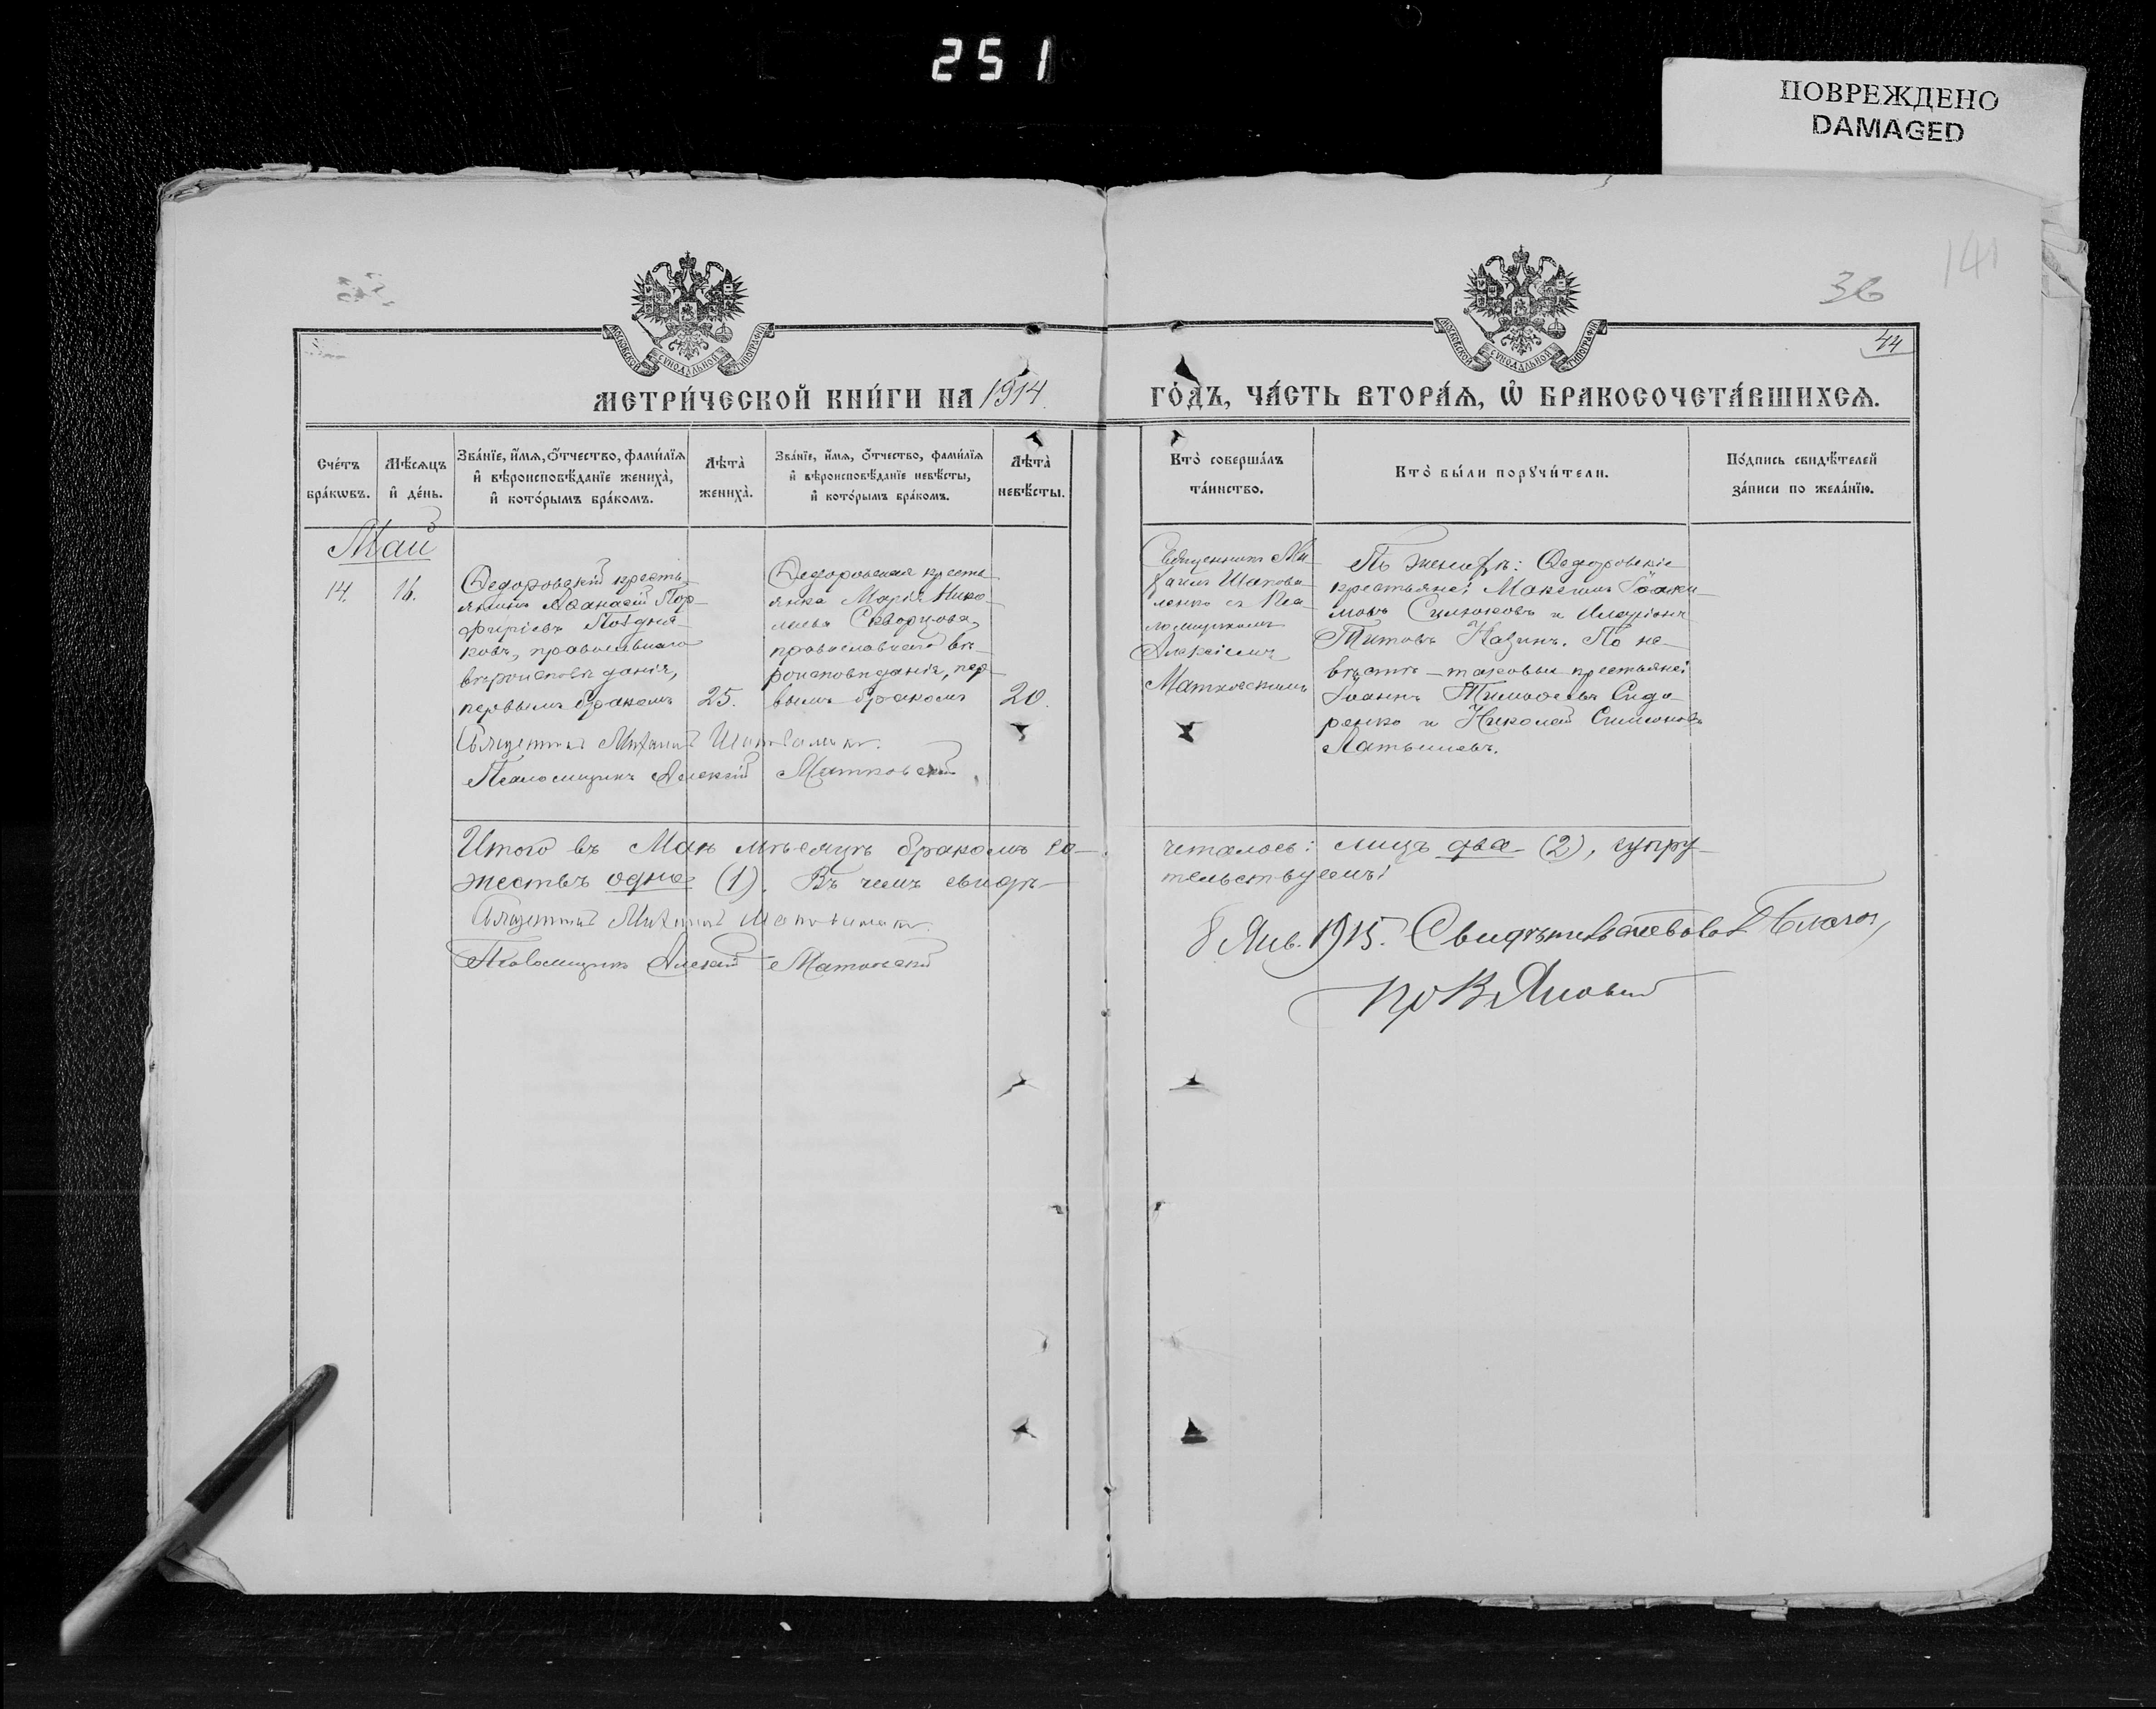 251
ПОВРЕЖДЕНО
DAMAGED
141
36
44
МОСКОВСКОЙ СѴНОДАЛЬНОЙ ТИПОГРАФІИ
МОСКОВСКОЙ СѴНОДАЛЬНОЙ ТИПОГРАФІИ
МЕТРИ́ЧЕСКОЙ КНИ́ГИ НА 1914
ГО́ДЪ, ЧА́СТЬ ВТОРА́Ѧ, Ѽ БРАКОСОЧЕТА́ВШИХСѦ.
Сче́тъ
бра́кѡвъ.
Мѣ́сѧцъ
и҆ де́нь.
Зва́нїе, и҆́мѧ, ѻ҆́тчество, фами́лїѧ
и҆ вѣроисповѣ́данїе жениха̀,
и҆ кото́рымъ бра́комъ.
Лѣта̀
жениха̀.
Зва́нїе, и҆́мѧ, ѻ҆́тчество, фами́лїѧ
и҆ вѣроисповѣ́данїе невѣ́сты,
и҆ кото́рымъ бра́комъ.
Лѣта̀
невѣ́сты.
Кто̀ соверша́лъ
та́инство.
Кто̀ бы́ли порꙋчи́тели.
По́дпись свидѣ́телей
за́писи по жела́нїю.
Май
14.
16.
Ѳедоровскій кресть-
янинъ Аѳанасій Пор-
фиріевъ Поздня-
ковъ, православнаго
вѣроисповѣданія,
первымъ бракомъ
25.
Ѳедоровская кресть-
янка Марія Нико-
лаева Скворцова,
православнаго вѣ-
роисповѣданія, пер-
вымъ бракомъ
20.
Священникъ Ми-
хаилъ Шапова-
ленко съ Пса-
ломщикомъ
Алексіемъ
Матковскимъ
По женихѣ: Ѳедоровскіе
крестьяне: Максимъ Іоаки-
мовъ и Иларіонъ
Титовъ Назинъ. По не-
вѣстѣ – таковые крестьяне:
Іоаннъ Тимоѳеевъ Сидо-
ренко и Николай Симоновъ
Латышевъ.
Священникъ Михаилъ Шаповаленко.
Псаломщикъ Алексій Матковскій
Итого въ Маѣ мѣсяцѣ бракомъ со-
четалось: лицъ два (2), супру-
жествъ одно (1). Въ чемъ свидѣ-
тельствуемъ:
Священникъ Михаилъ Шаповаленко.
Псаломщикъ Алексій Матковскій
8 Янв. 1915. Свидѣтельствовалъ Благоч,